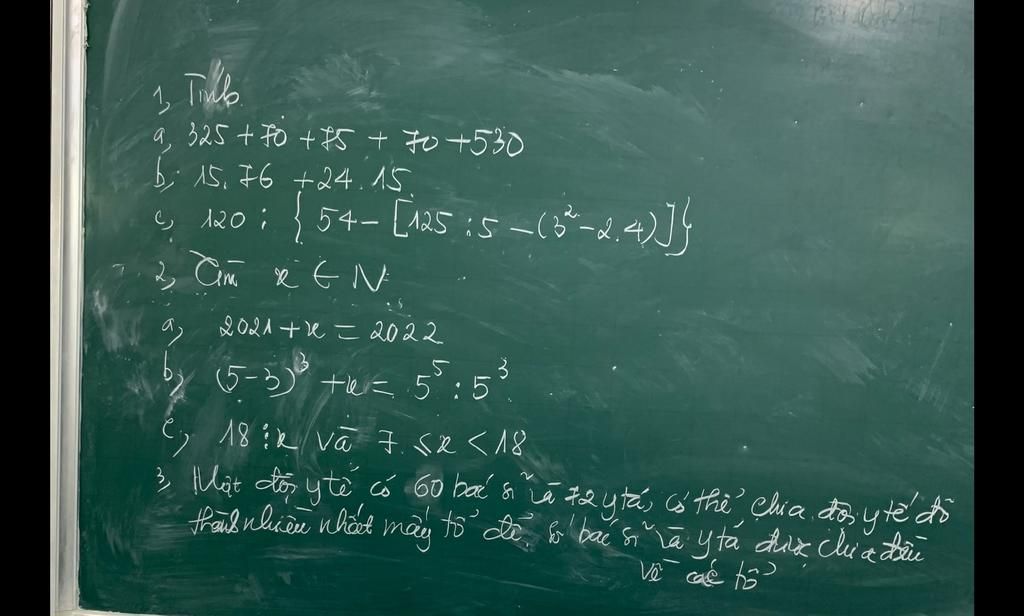 1, Tính
a, 325 + 70 + 75 + 70 + 530
b, 15.76 + 24.15
c, 120 : { 54 - [125 : 5 - (3² - 2.4)]}
2, Tìm x ∈ N
a, 2021 + x = 2022
b, (5-3)³ + x = 5⁵ : 5³
c, 18 ⋮ x và 7 ≤ x < 18
3, Một đội y tế có 60 bác sĩ và 72 y tá, có thể chia đội y tế đó
thành nhiều nhất mấy tổ để số bác sĩ và y tá được chia đều
về các tổ